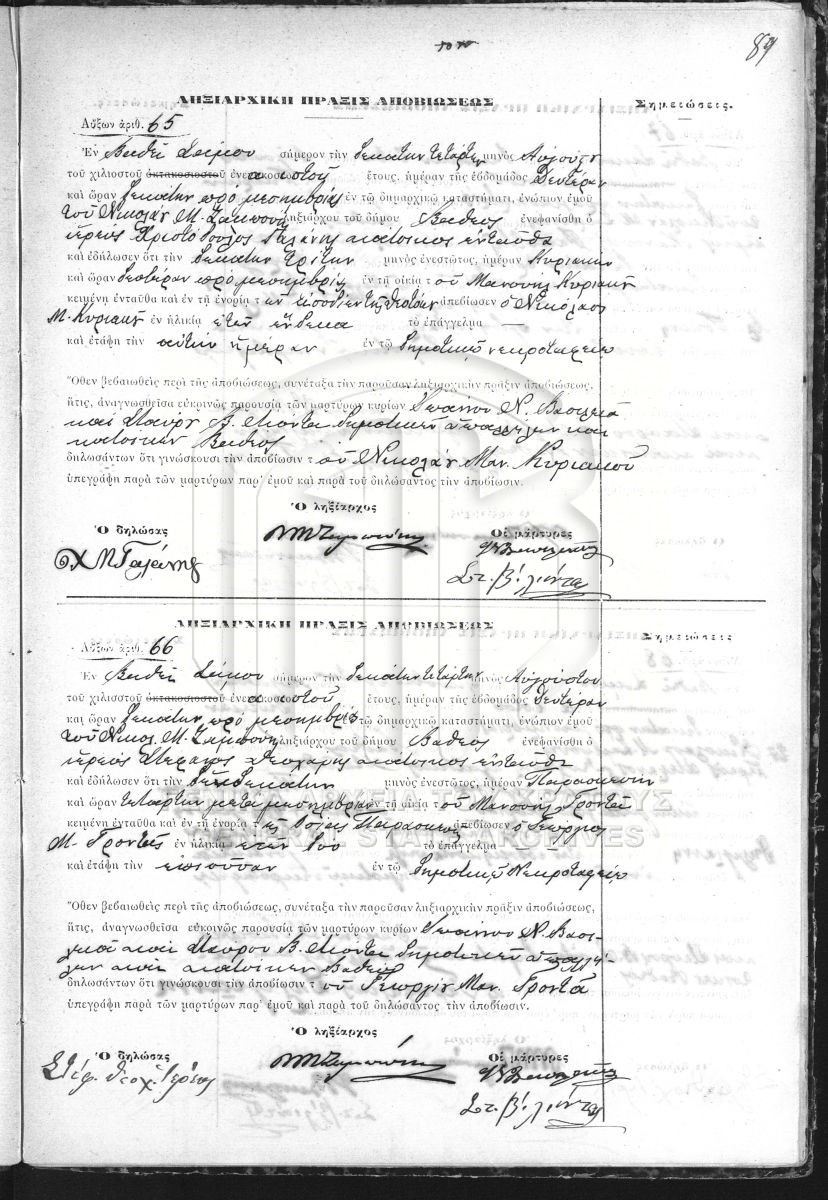 89
ΛΗΞΙΑΡΧΙΚΗ ΠΡΑΞΙΣ ΑΠΟΒΙΩΣΕΩΣ
Σημειώσεις.
Αὔξων ἀριθ. 65
Ἐν Βαθεῖ Σάμου σήμερον τὴν δεκάτην τετάρτην μηνὸς Αὐγούστου
τοῦ χιλιοστοῦ ὀκτακοσιοστοῦ ἐνεακοσιοστοῦ ἔτους, ἡμέραν τῆς ἑβδομάδος Δευτέραν
καὶ ὥραν δεκάτην πρὸ μεσημβρίας ἐν τῷ δημαρχικῷ καταστήματι, ἐνώπιον ἐμοῦ
τοῦ Νικολάου Μ. Ζαμπούνη ληξιάρχου τοῦ δήμου Βαθέος ἐνεφανίσθη ὁ
ἱερεὺς Χριστόδουλος Γαλάνης κάτοικος ἐνταῦθα
καὶ ἐδήλωσεν ὅτι τὴν δεκάτην τρίτην μηνὸς ἐνεστῶτος, ἡμέραν Κυριακὴν
καὶ ὥραν δευτέραν πρὸ μεσημβρίας ἐν τῇ οἰκίᾳ τοῦ Μανουὴλ Κυριακοῦ
κειμένῃ ἐνταῦθα καὶ ἐν τῇ ἐνορίᾳ τῶν Εἰσοδίων τῆς Θεοτόκου ἀπεβίωσεν ὁ Νικόλαος
Μ. Κυριακοῦ ἐν ἡλικίᾳ ἐτῶν ἕνδεκα τὸ ἐπάγγελμα —
καὶ ἐτάφη τὴν αὐτὴν ἡμέραν ἐν τῷ δημοτικῷ νεκροταφείῳ
Ὅθεν βεβαιωθεὶς περὶ τῆς ἀποβιώσεως, συνέταξα τὴν παροῦσαν ληξιαρχικὴν πρᾶξιν ἀποβιώσεως,
ἥτις, ἀναγνωσθεῖσα εὐκρινῶς παρουσίᾳ τῶν μαρτύρων κυρίων Ἰωάννου Ν. Βασιλικᾶ
καὶ Σταύρου Β. Λιόντα δημοτικῶν ὑπαλλήλων καὶ
κατοίκων Βαθέος
δηλωσάντων ὅτι γινώσκουσι τὴν ἀποβίωσιν τοῦ Νικολάου Μαν. Κυριακοῦ
ὑπεγράφη παρὰ τῶν μαρτύρων παρ' ἐμοῦ καὶ παρὰ τοῦ δηλώσαντος τὴν ἀποβίωσιν.
Ὁ ληξίαρχος
Ὁ δηλώσας
Οἱ μάρτυρες
ΝΜΖαμπούνης
Χ Μ Γαλάνης
Στ. Β. Λιόντας
ΛΗΞΙΑΡΧΙΚΗ ΠΡΑΞΙΣ ΑΠΟΒΙΩΣΕΩΣ
Σημειώσεις
Αὔξων ἀριθ. 66
Ἐν Βαθεῖ Σάμου σήμερον τὴν δεκάτην τετάρτην μηνὸς Αὐγούστου
τοῦ χιλιοστοῦ ὀκτακοσιοστοῦ ἐνεακοσιοστοῦ ἔτους, ἡμέραν τῆς ἑβδομάδος Δευτέραν
καὶ ὥραν δεκάτην πρὸ μεσημβρίας ἐν τῷ δημαρχικῷ καταστήματι, ἐνώπιον ἐμοῦ
τοῦ Νικολ. Μ. Ζαμπούνη ληξιάρχου τοῦ δήμου Βαθέος ἐνεφανίσθη ὁ
ἱερεὺς Στέφανος κάτοικος ἐνταῦθα
καὶ ἐδήλωσεν ὅτι τὴν ἑνδεκάτην μηνὸς ἐνεστῶτος, ἡμέραν Παρασκευὴν
καὶ ὥραν τετάρτην μετὰ μεσημβρίαν ἐν τῇ οἰκίᾳ τοῦ Μανουὴλ Γροντᾶ
κειμένῃ ἐνταῦθα καὶ ἐν τῇ ἐνορίᾳ τῆς Ὁσίας Παρασκευῆς ἀπεβίωσεν ὁ Γεώργιος
Μ. Γροντᾶς ἐν ἡλικίᾳ ἐτῶν δύο τὸ ἐπάγγελμα
καὶ ἐτάφη τὴν ἐπιοῦσαν ἐν τῷ δημοτικῷ Νεκροταφείῳ
Ὅθεν βεβαιωθεὶς περὶ τῆς ἀποβιώσεως, συνέταξα τὴν παροῦσαν ληξιαρχικὴν πρᾶξιν ἀποβιώσεως,
ἥτις, ἀναγνωσθεῖσα εὐκρινῶς παρουσίᾳ τῶν μαρτύρων κυρίων Ἰωάννου Ν. Βασι-
λικᾶ καὶ Σταύρου Β. Λιόντα δημοτικῶν ὑπαλλή-
λων καὶ κατοίκων Βαθέος
δηλωσάντων ὅτι γινώσκουσι τὴν ἀποβίωσιν τοῦ Γεωργίου Μαν. Γροντᾶ
ὑπεγράφη παρὰ τῶν μαρτύρων παρ' ἐμοῦ καὶ παρὰ τοῦ δηλώσαντος τὴν ἀποβίωσιν.
Ὁ ληξίαρχος
Ὁ δηλώσας
Οἱ μάρτυρες
ΝΜΖαμπούνης
Στ. Β. Λιόντας
GENERAL STATE ARCHIVES